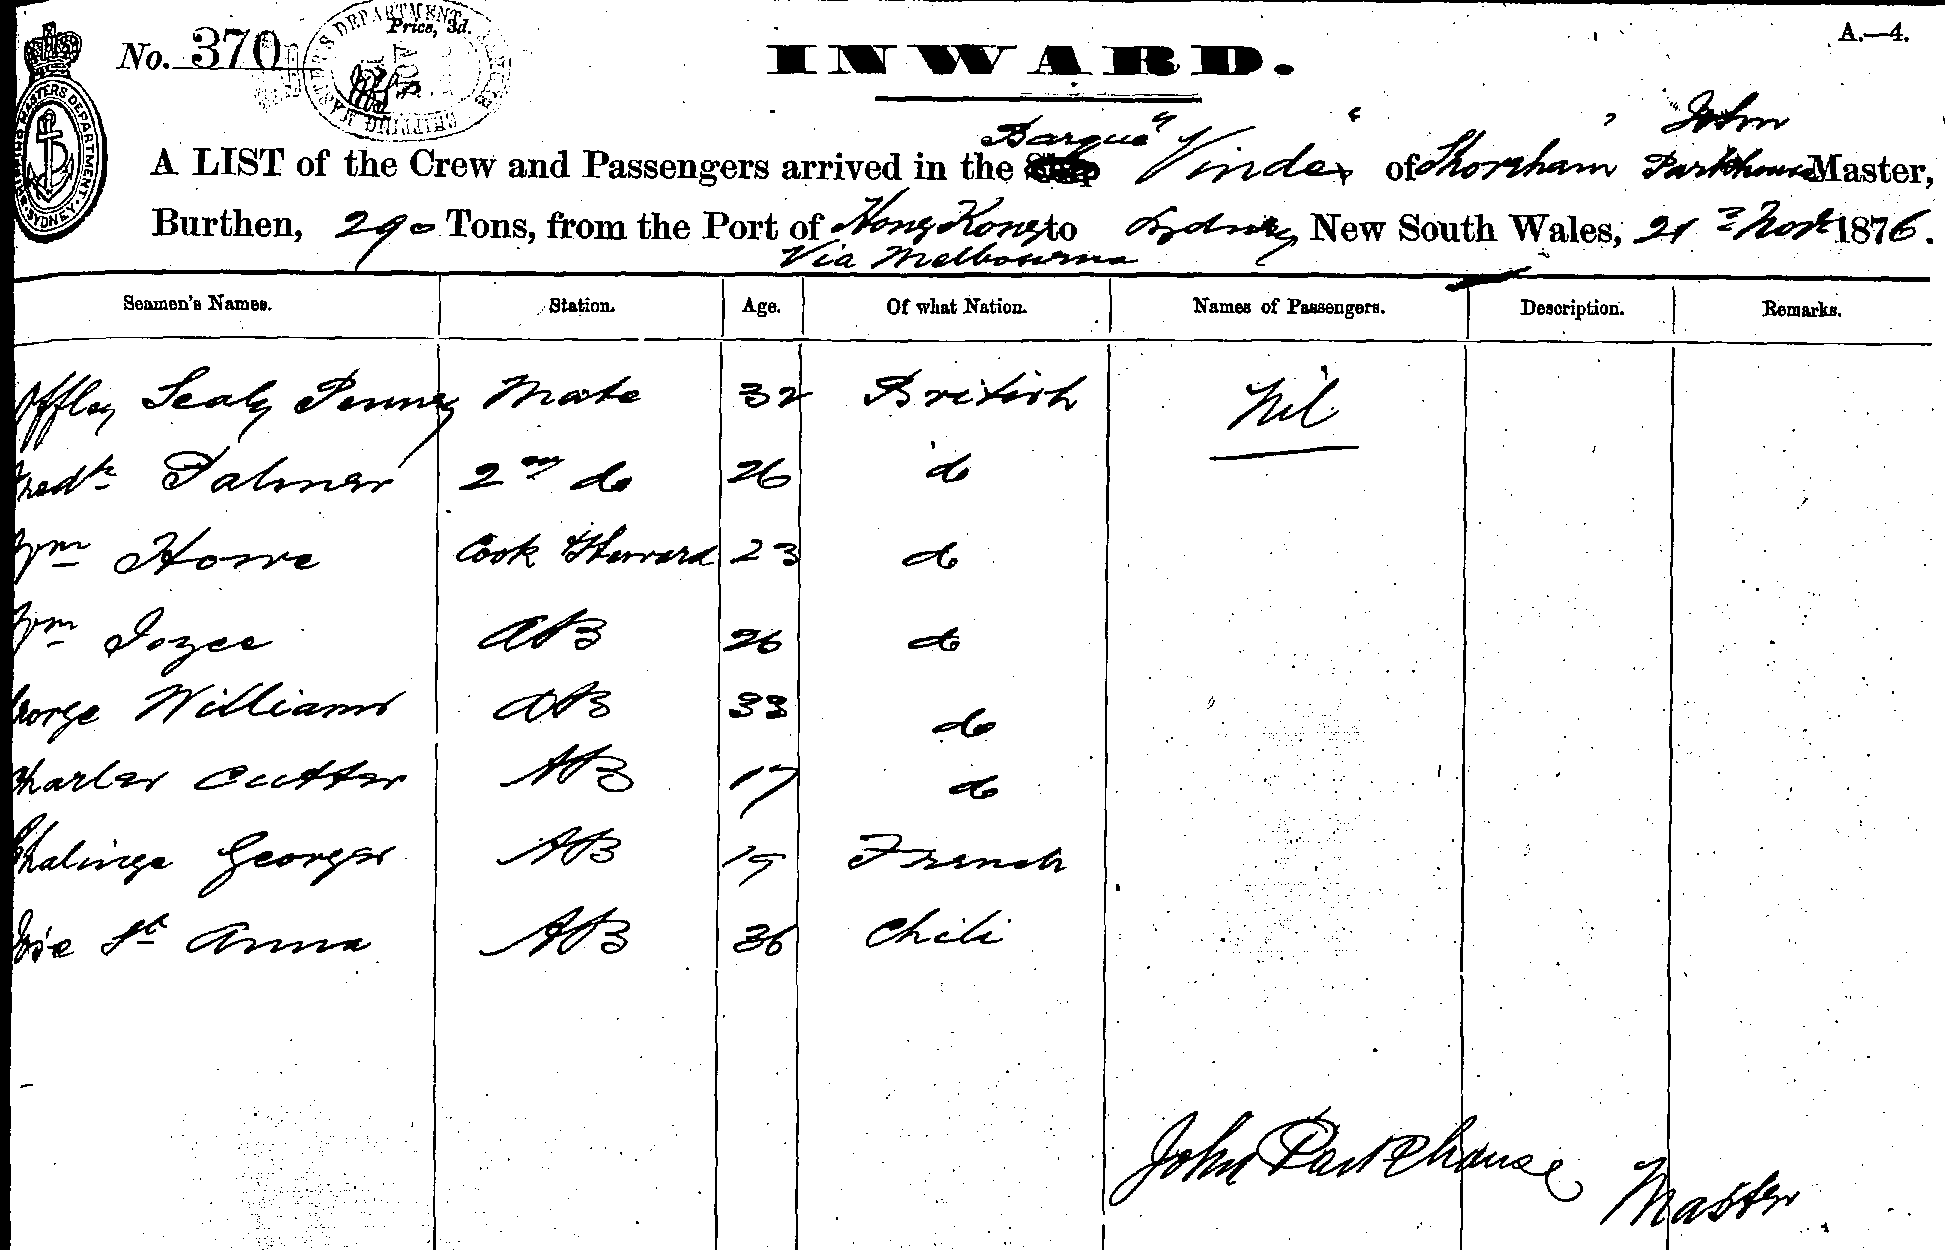 No. 370
Price, 3d.
A.—4.
SHIPPING MASTERS DEPARTMENT SYDNEY
INWARD.
A LIST of the Crew and Passengers arrived in the Barque "Vindex" of Shoreham, John Parkhouse Master,
Burthen, 290 Tons, from the Port of Hong Kong to Sydney New South Wales, 21st Novr 1876.
Via Melbourne
Seamen's Names. Station. Age. Of what Nation. Names of Passengers. Description. Remarks.
Offley Sealy Penney Mate 32 British Nil
Fredk Palmer 2nd do 26 do
Wm Howe Cook Steward 23 do
Wm Joyce AB 26 do
George Williams AB 33 do
Charles Cutter AB 17 do
Georges AB 19 French
Jose St Anna AB 36 Chili
John Parkhouse
Master